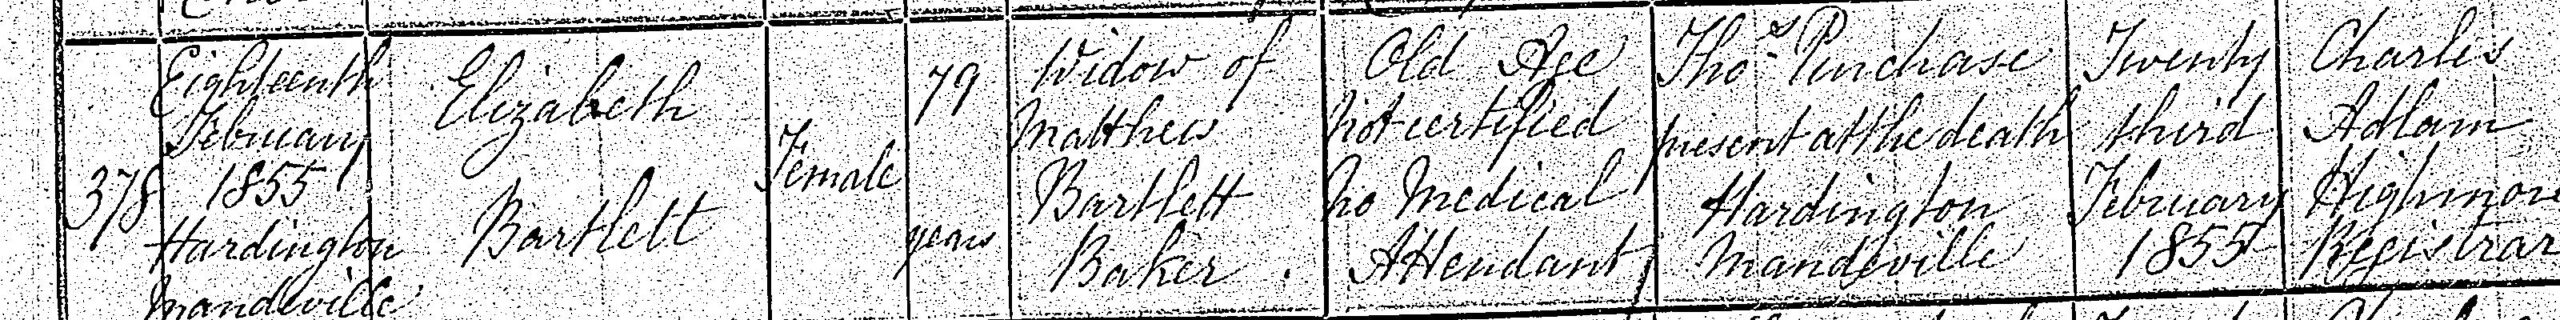 378
Eighteenth
February
1855
Hardington
Mandeville
Elizabeth
Bartlett
Female
79
years
Widow of
Matthew
Bartlett
Baker
Old Age
Not certified
No Medical
Attendant
Thos Purchase
present at the death
Hardington
Mandeville
Twenty
third
February
1855
Charles
Adlam
Highmore
Registrar